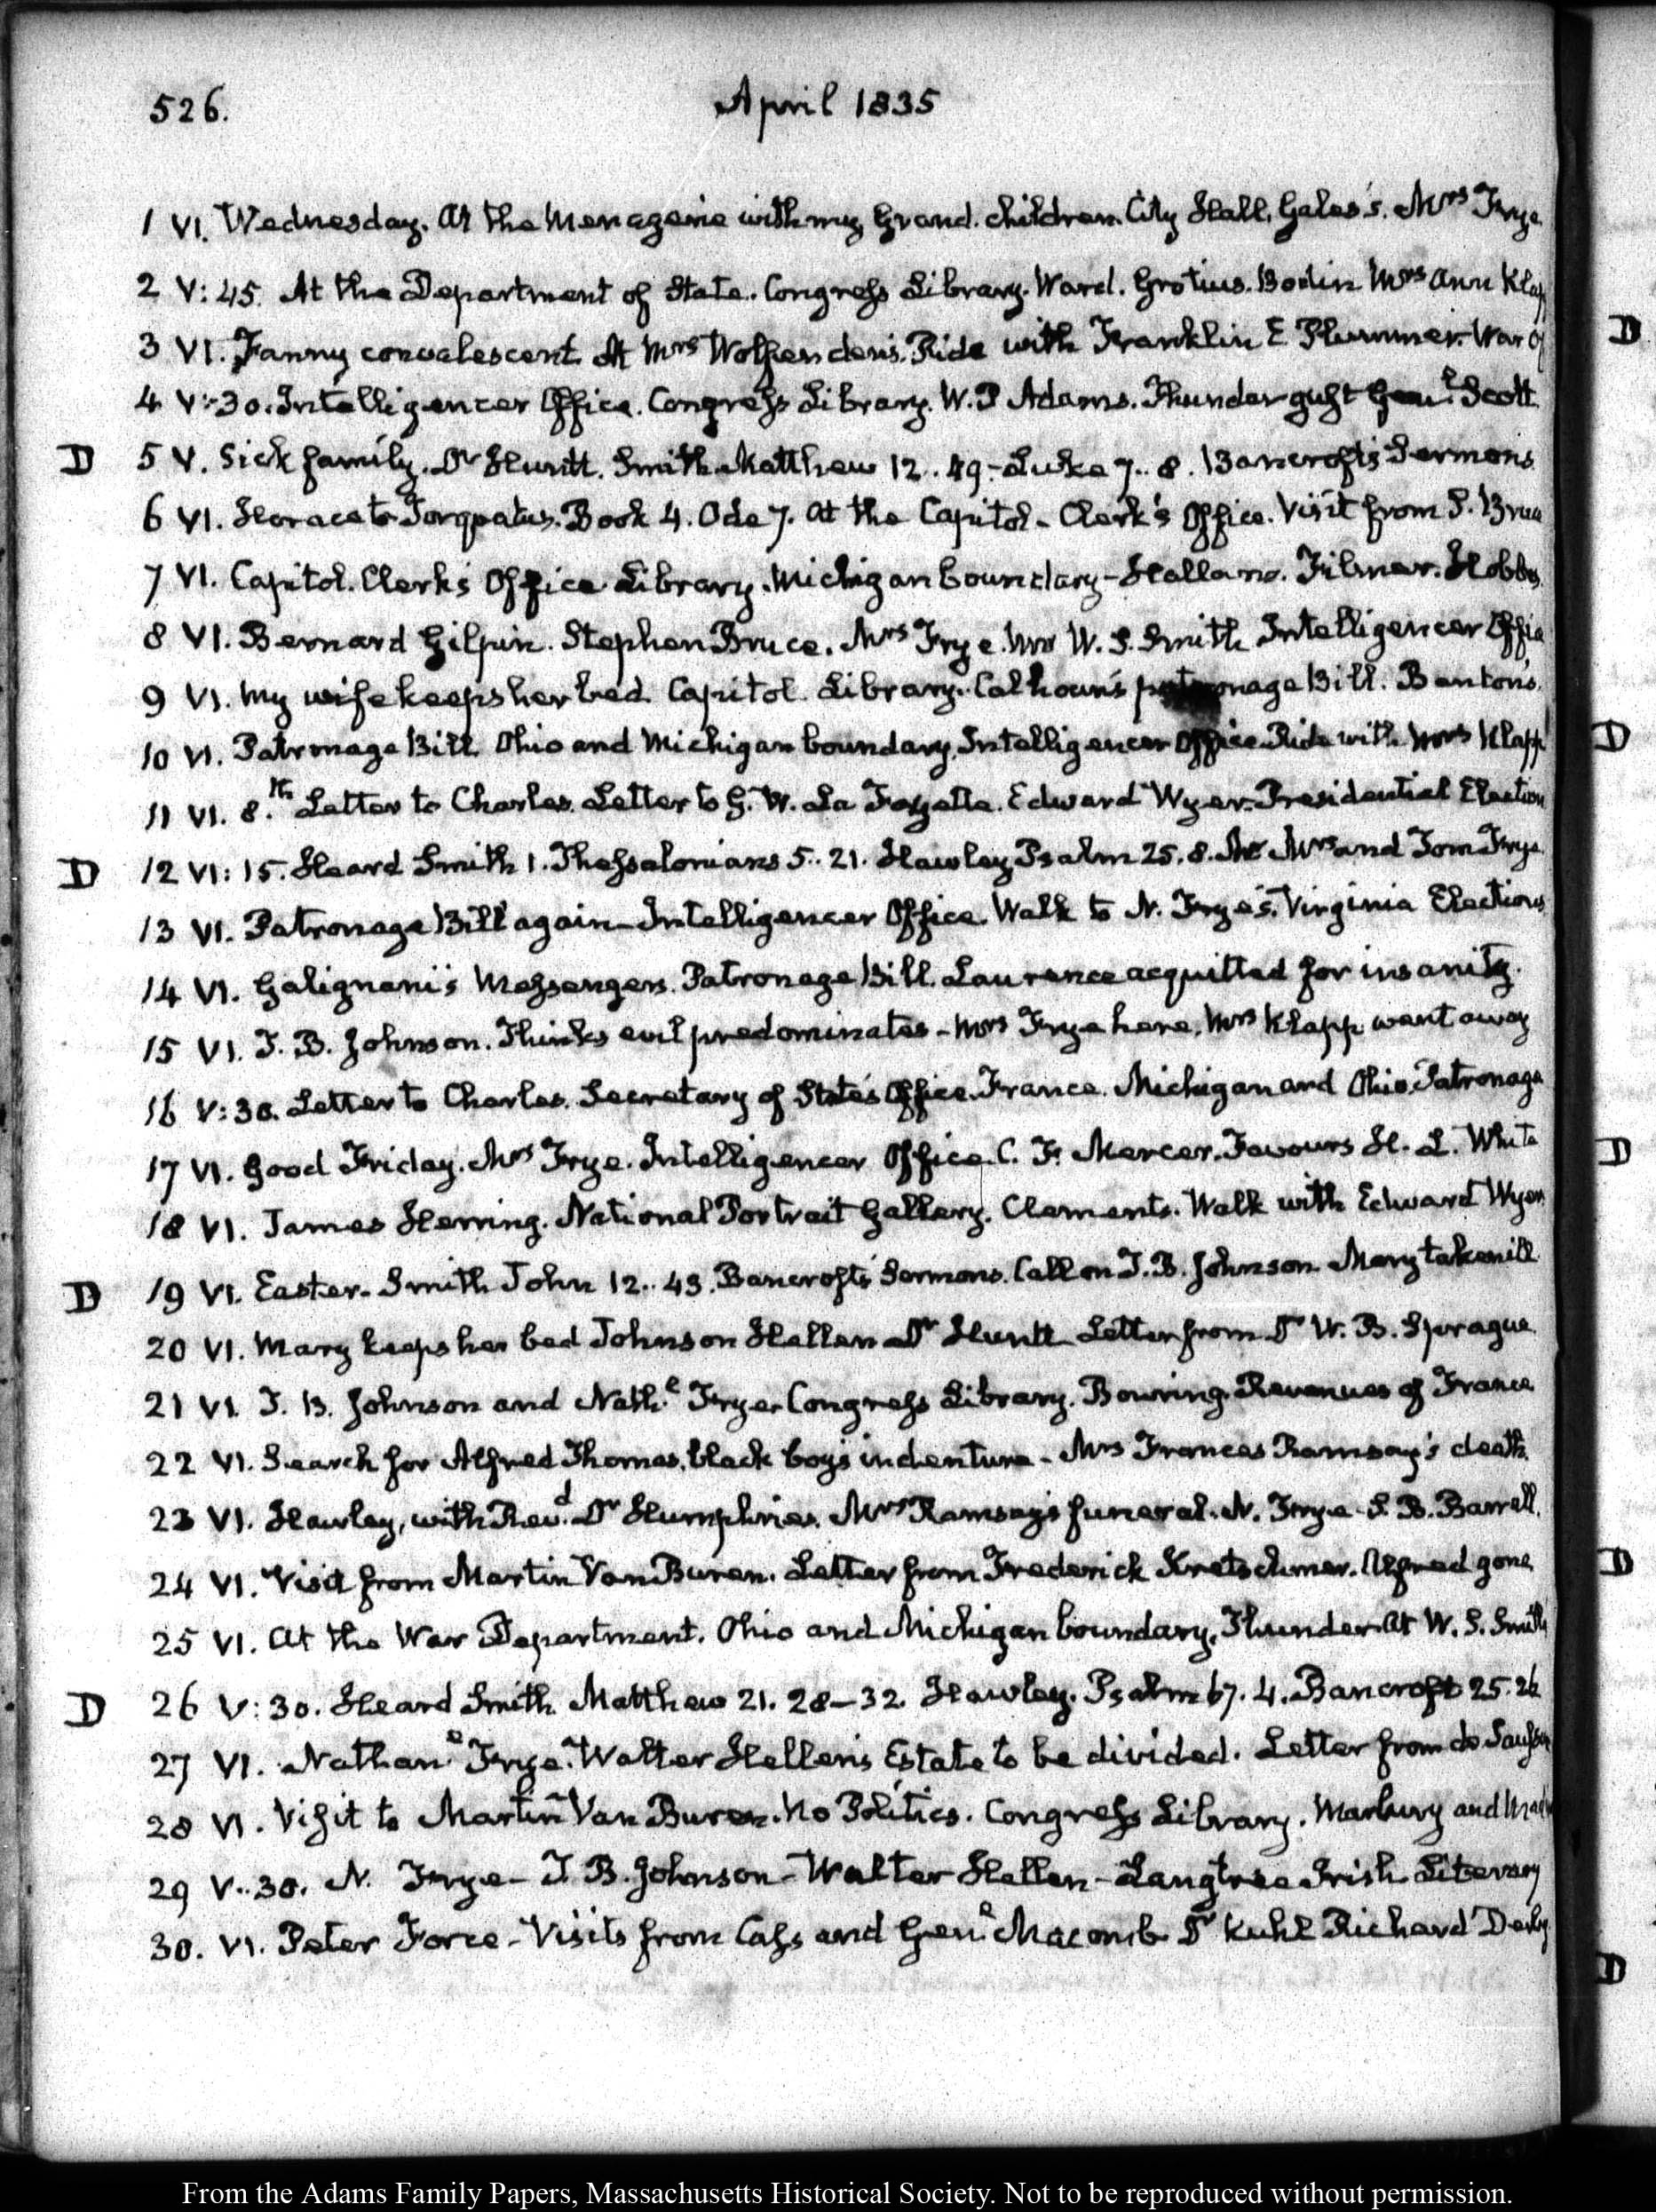 526.
April 1835
1 VI. Wednesday. At the Menagerie with my Grand. children. City Hall. Gales's. Mrs Frye
2 V:45. At the Department of State. Congress Library. Ward. Grotius. Bodin Mrs Ann Klap
3 VI. Fanny convalescent. At Mrs Wolfenden's. Ride with Franklin E Plummer. War of
4 V:30. Intelligencer Office. Congress Library. W. P Adams. Thunder gust Genl. Scott.
D 5 V. Sick family. Dr Huntt. Smith. Matthew 12..49. Luke 7..8. Bancroft's Sermons.
6 VI. Horace to Torquatus. Book 4. Ode 7. At the Capitol. Clerk's Office. Visit from S. Bruce
7 VI. Capitol. Clerk's Office Library. Michigan boundary - Hallam. Filmer. Hobbes
8 VI. Bernard Gilpin. Stephen Bruce. Mrs Frye. Mrs W. S. Smith Intelligencer Office
9 VI. My wife keeps her bed. Capitol. Library. Calhoun's patronage Bill. Benton's.
10 VI. Patronage Bill. Ohio and Michigan boundary. Intelligencer Office. Ride with Mrs Klapp
11 VI. 8.th Letter to Charles. Letter to G. W. La Fayette. Edward Wyer. Presidential Election
D 12 VI:15. Heard Smith 1. Thessalonians 5..21. Hawley Psalm 25.8. Mrs and Tom Frye
13 VI. Patronage Bill again - Intelligencer Office. Walk to N. Frye's. Virginia Elections
14 VI. Galignani's Messengers. Patronage Bill. Laurence acquitted for insanity.
15 VI. T. B. Johnson. Thinks evil predominates - Mrs Frye here. Mrs Klapp went away
16 V:30. Letter to Charles. Secretary of State's Office. France. Michigan and Ohio. Patronage
17 VI. Good Friday. Mrs Frye. Intelligencer Office. C. F. Mercer. Favours H. L. White
18 VI. James Herring. National Portrait Gallery. Clements. Walk with Edward Wyer
D 19 VI. Easter. Smith John 12..43. Bancroft's Sermons. Call on T. B. Johnson. Mary taken ill
20 VI. Mary keeps her bed Johnson Hellen Dr Huntt Letter from Dr W. B. Sprague.
21 VI. T. B. Johnson and Nath.l Frye. Congress Library. Bowring. Revenues of France
22 VI. Search for Alfred Thomas, black boy's indenture - Mrs Frances Ramsay's death.
23 VI. Hawley, with Rev.d Dr Humphries. Mrs Ramsay's funeral. N. Frye - S. B. Barrell.
24 VI. Visit from Martin Van Buren. Letter from Frederick Kretschmer. Alfred gone
25 VI. At the War Department. Ohio and Michigan boundary. Thunder. At W. S. Smith
D 26 V:30. Heard Smith. Matthew 21. 28-32. Hawley. Psalm 67. 4. Bancroft 25. 26
27 VI. Nathanl Frye. Walter Hellen's Estate to be divided. Letter from
28 VI. Visit to Martin Van Buren. No Politics. Congress Library. Marbury and
29 V:30. N. Frye - T. B. Johnson - Walter Hellen - Langtree Irish Literary
30. VI. Peter Force - Visits from Cass and Genl Macomb Dr Kuhl Richard Derby
D
D
D
D
D
From the Adams Family Papers, Massachusetts Historical Society. Not to be reproduced without permission.